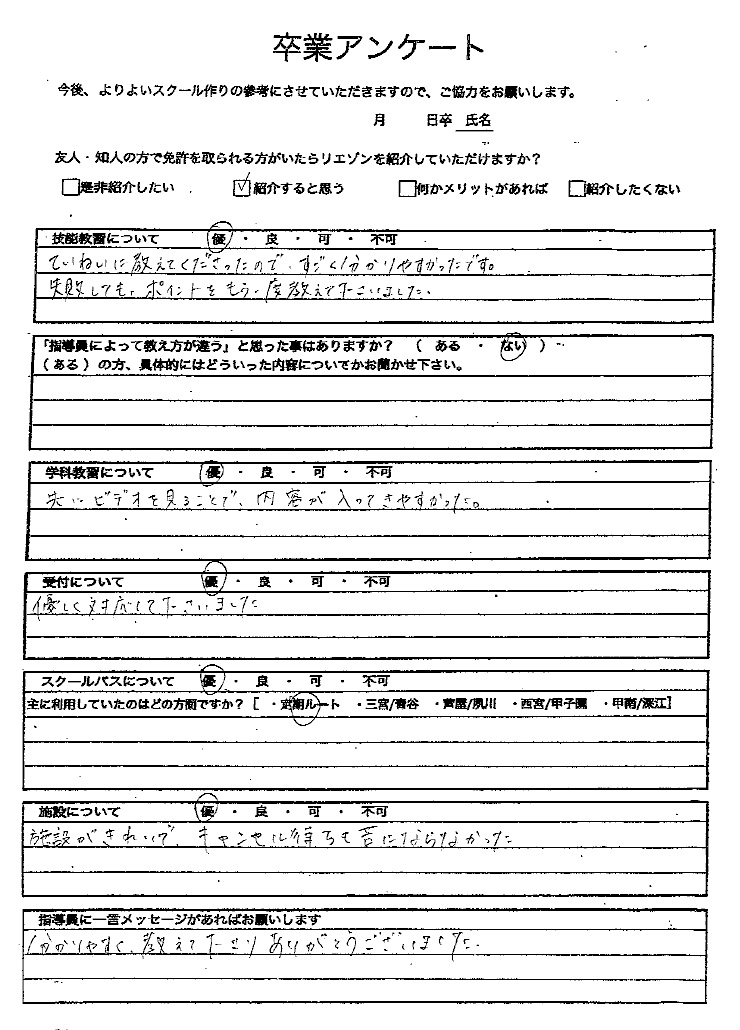 卒業アンケート
今後、よりよいスクール作りの参考にさせていただきますので、ご協力をお願いします。
月 日卒 氏名
友人・知人の方で免許を取られる方がいたらリエゾンを紹介していただけますか？
是非紹介したい 紹介すると思う 何かメリットがあれば 紹介したくない
技能教習について 優 ・ 良 ・ 可 ・ 不可
ていねいに教えてくださったので、すごく分かりやすかったです。
失敗しても、ポイントをもう一度教えて下さいました。
「指導員によって教え方が違う」と思った事はありますか？ （ ある ・ ない ）
（ある）の方、具体的にはどういった内容についてかお聞かせ下さい。
学科教習について 優 ・ 良 ・ 可 ・ 不可
先にビデオを見ることで、内容が入ってきやすかった。
受付について 優 ・ 良 ・ 可 ・ 不可
優しく対応して下さいました
スクールバスについて 優 ・ 良 ・ 可 ・ 不可
主に利用していたのはどの方面ですか？［ ・定期ルート ・三宮/青谷 ・芦屋/夙川 ・西宮/甲子園 ・甲南/深江］
施設について 優 ・ 良 ・ 可 ・ 不可
施設がきれいで、キャンセル待ちも苦にならなかった
指導員に一言メッセージがあればお願いします
分かりやすく、教えて下さりありがとうございました。